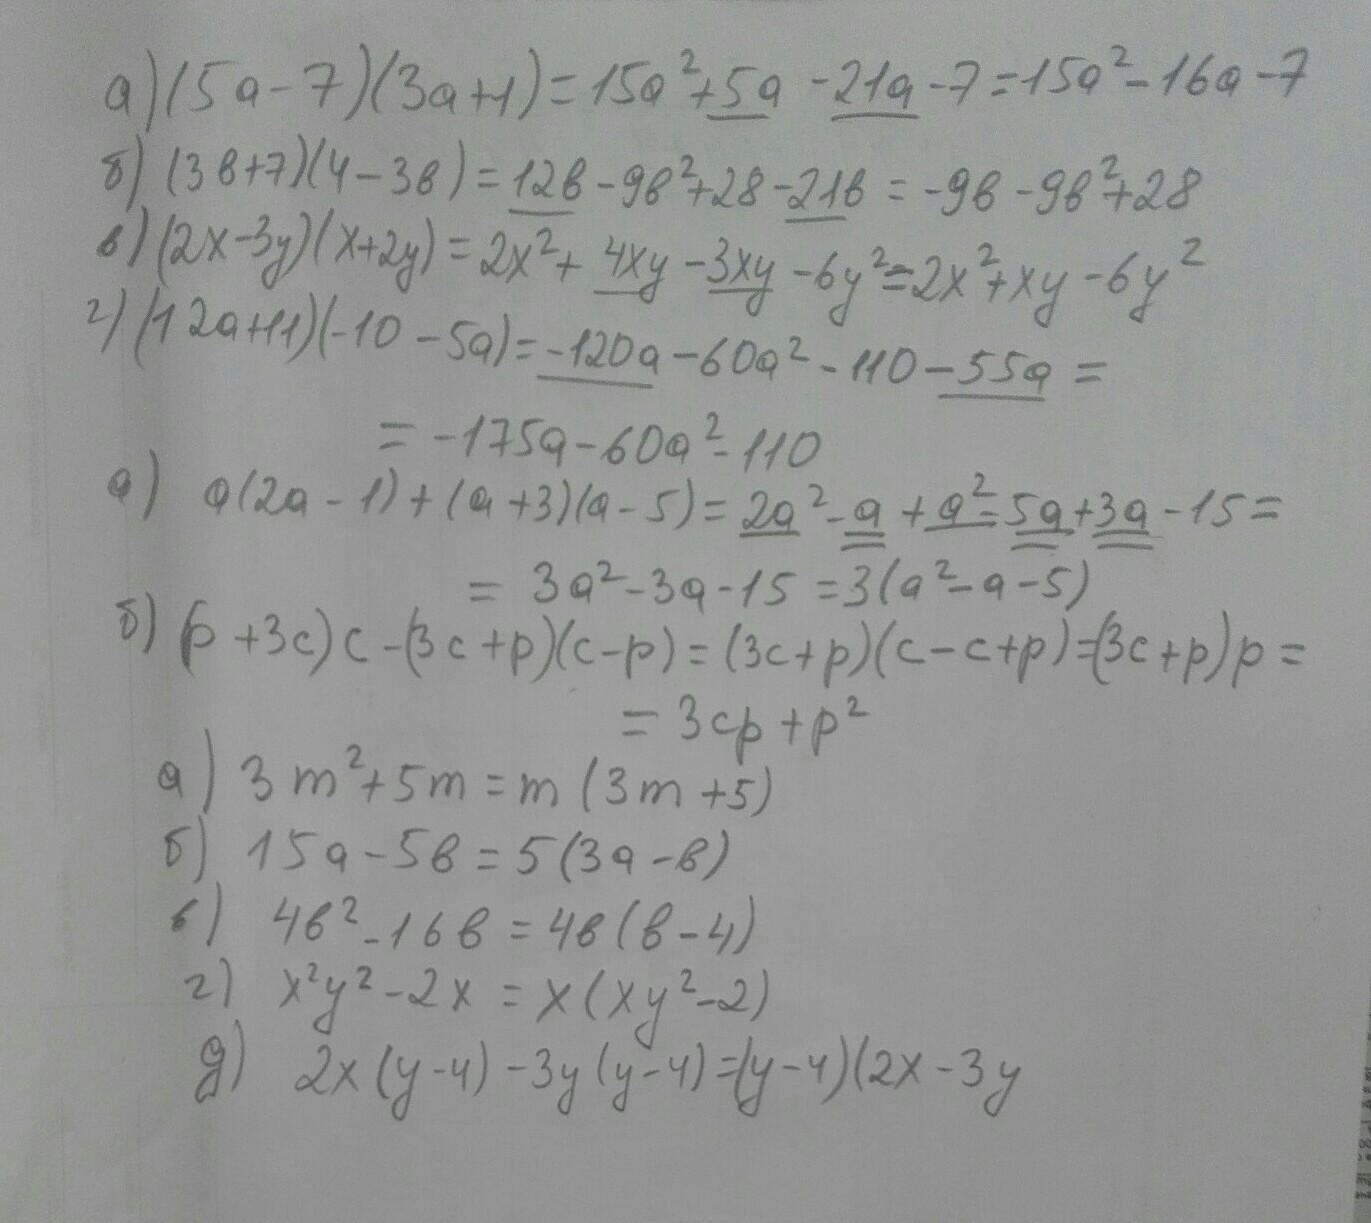 а) (5a-7)(3a+1)=15a²+5a-21a-7=15a²-16a-7
б) (3в+7)(4-3в)=12в-9в²+28-21в=-9в-9в²+28
в) (2x-3y)(x+2y)=2x²+4xy-3xy-6y²=2x²+xy-6y²
г) (12a+11)(-10-5a)=-120a-60a²-110-55a=
=-175a-60a²-110
а) a(2a-1)+(a+3)(a-5)=2a²-a+a²-5a+3a-15=
=3a²-3a-15=3(a²-a-5)
б) (p+3c)c-(3c+p)(c-p)=(3c+p)(c-c+p)=(3c+p)p=
=3cp+p²
а) 3m²+5m=m(3m+5)
б) 15a-5в=5(3a-в)
в) 4в²-16в=4в(в-4)
г) x²y²-2x=x(xy²-2)
д) 2x(y-4)-3y(y-4)=(y-4)(2x-3y